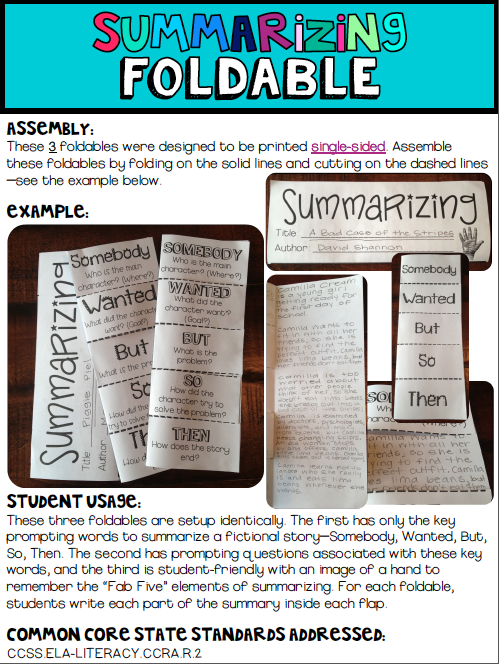 SUMMARIZING
FOLDABLE
ASSEMBLY:
These 3 foldables were designed to be printed single-sided. Assemble
these foldables by folding on the solid lines and cutting on the dashed lines
—see the example below.
EXAMPLE:
Summarizing
Title: A Bad Case of the Stripes
Author: David Shannon
Summarizing
Title: Piggie Pie!
Somebody
Who is the main
character? (Where?)
Wanted
What did the character
want? (Goal?)
But
What is the
So
How did
try to solve
SOMEBODY
Who is the main
character? (Where?)
WANTED
What did the
character want?
(Goal?)
BUT
What is the
problem?
SO
How did the
character try to
solve the problem?
THEN
How does the story
end?
Camilla Cream
is a young girl
getting ready for
the first day of
school.
Camilla wants to
fit in with all her
Somebody
Wanted
But
So
Then
STUDENT USAGE:
These three foldables are setup identically. The first has only the key
prompting words to summarize a fictional story—Somebody, Wanted, But,
So, Then. The second has prompting questions associated with these key
words, and the third is student-friendly with an image of a hand to
remember the "Fab Five" elements of summarizing. For each foldable,
students write each part of the summary inside each flap.
COMMON CORE STATE STANDARDS ADDRESSED:
CCSS.ELA-LITERACY.CCRA.R.2